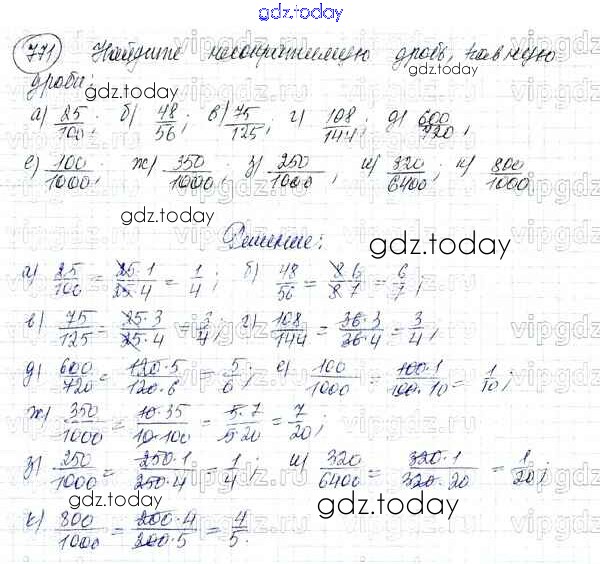 gdz.today
771 Найдите несократимую дробь, равную
дроби:
gdz.today
а) 25/100; б) 48/56; в) 75/125; г) 108/144; д) 600/720;
е) 100/1000; ж) 350/1000; з) 250/1000; и) 320/6400; к) 800/1000
gdz.today
Решение:
gdz.today
а) 25/100 = 25·1/25·4 = 1/4; б) 48/56 = 8·6/8·7 = 6/7;
в) 75/125 = 25·3/25·4 = 3/4; г) 108/144 = 36·3/36·4 = 3/4;
д) 600/720 = 120·5/120·6 = 5/6; е) 100/1000 = 100·1/100·10 = 1/10;
ж) 350/1000 = 10·35/10·100 = 5·7/5·20 = 7/20;
з) 250/1000 = 250·1/250·4 = 1/4; и) 320/6400 = 320·1/320·20 = 1/20;
gdz.today
к) 800/1000 = 200·4/200·5 = 4/5.
gdz.today